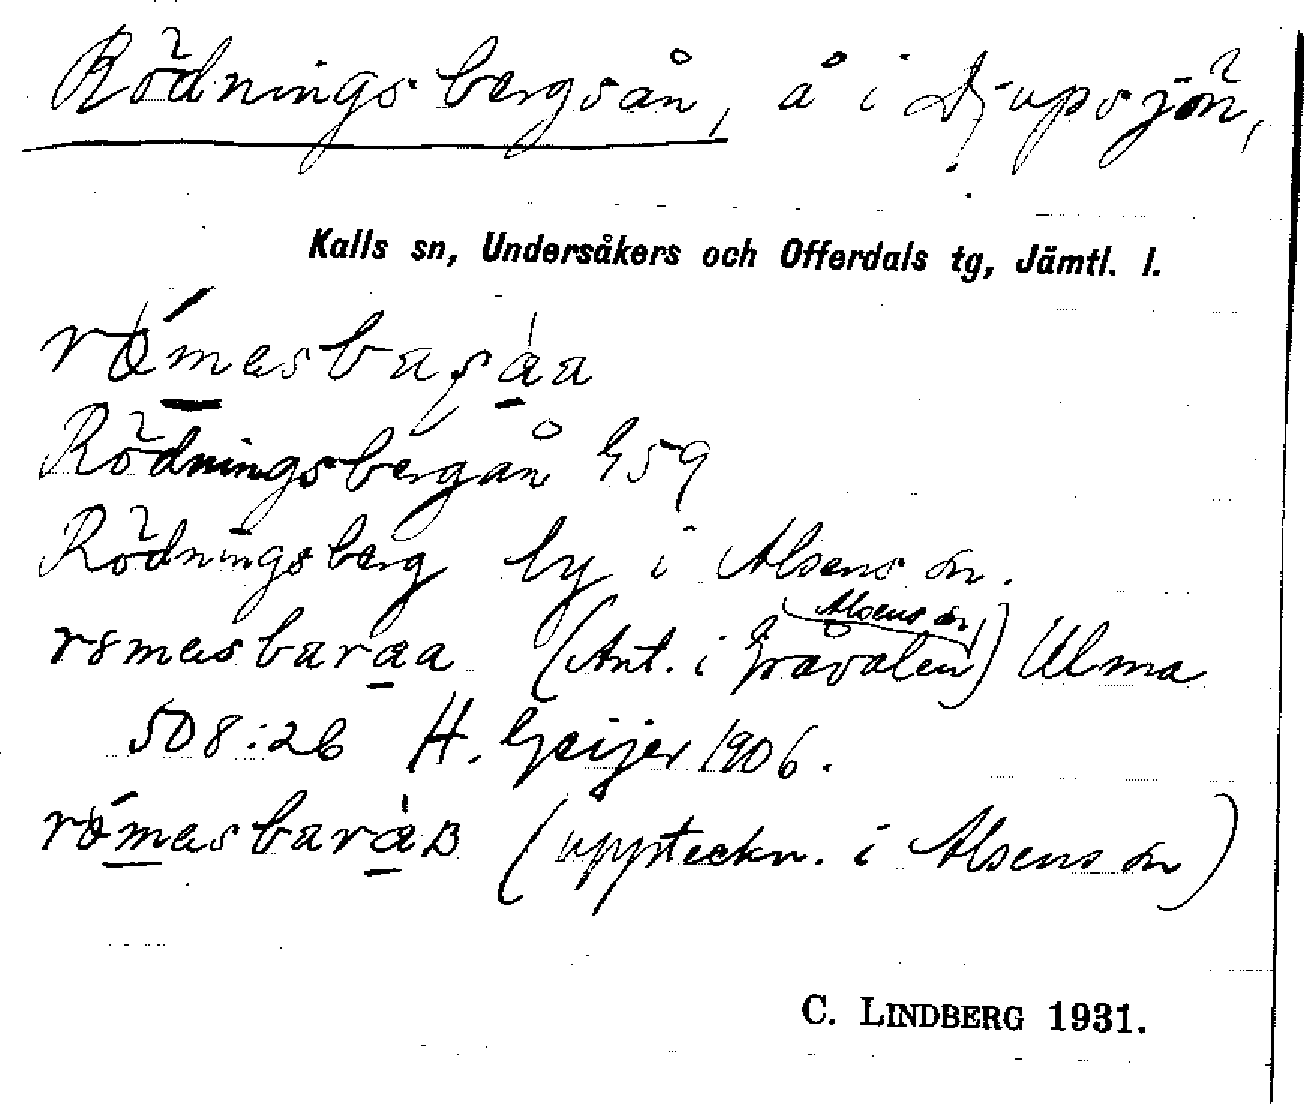 Rödningsbergsån, å i Djupsjön,
Kalls sn, Undersåkers och Offerdals tg, Jämtl. l.
Rödningsbergån G59
Rödningsberg by i Alsens sn.
Alsens sn
(Ant. i Gråvalen) Ulma
508:26 H. Geijer 1906.
(uppteckn. i Alsens sn)
C. LINDBERG 1931.